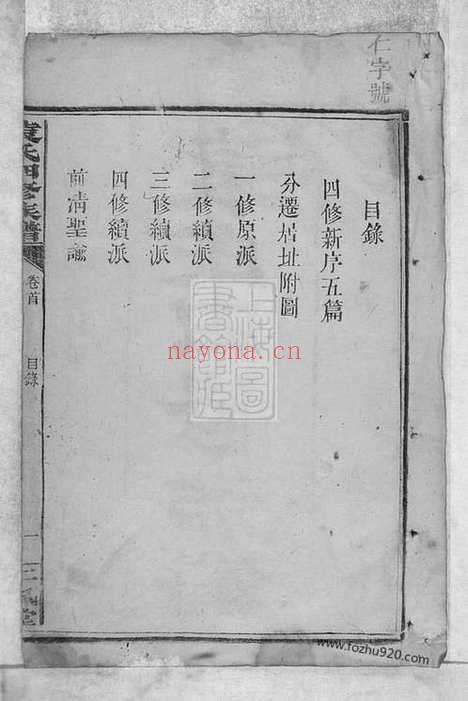 仁字號
目錄
四修新序五篇
分遷居址附圖
一修原派
二修續派
三修續派
四修續派
前清聖諭
袁氏四修族譜
卷首
目錄
一
堂
nayona.cn
www.fozhu920.com